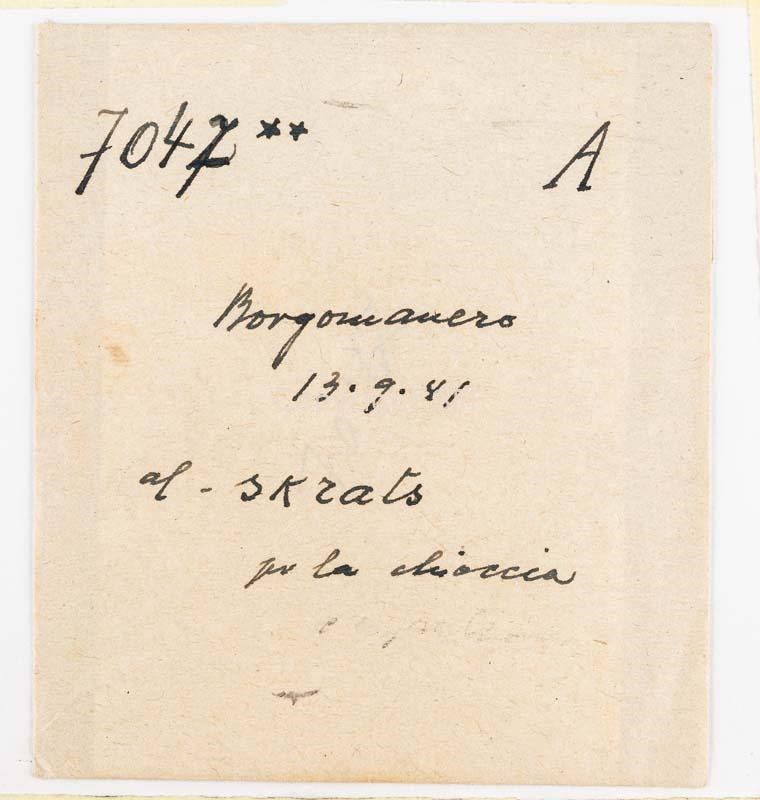 7047 ** A
Borgomanero
13.9.41
al - skrats
pr la chioccia